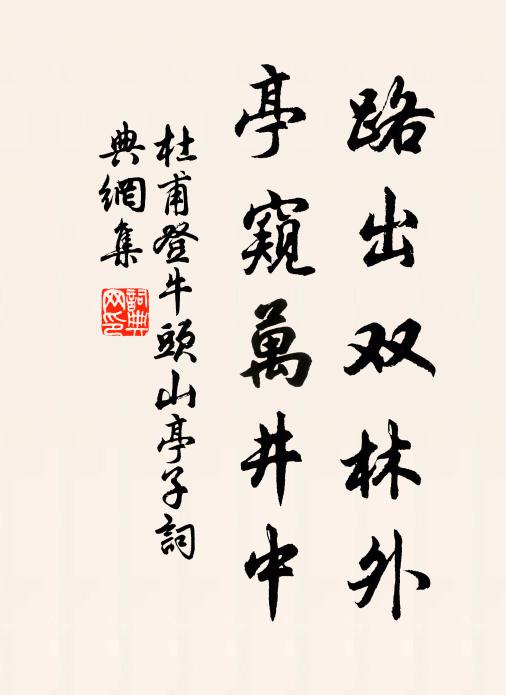 路出双林外
亭窺萬井中
杜甫登牛頭山亭子詞
典網集
詞典
网印